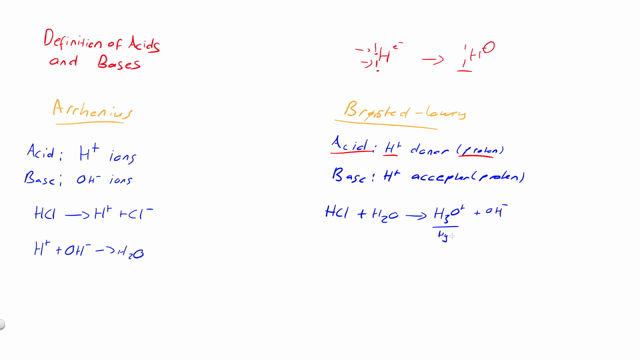 Definition of Acids
and Bases
Arrhenius
Acid: H⁺ ions
Base: OH⁻ ions
HCl → H⁺ + Cl⁻
H⁺ + OH⁻ → H₂O
H e⁻ → H
Brønsted-lowry
Acid: H⁺ donor (proton)
Base: H⁺ accepter (proton)
HCl + H₂O → H₃O⁺ + OH⁻